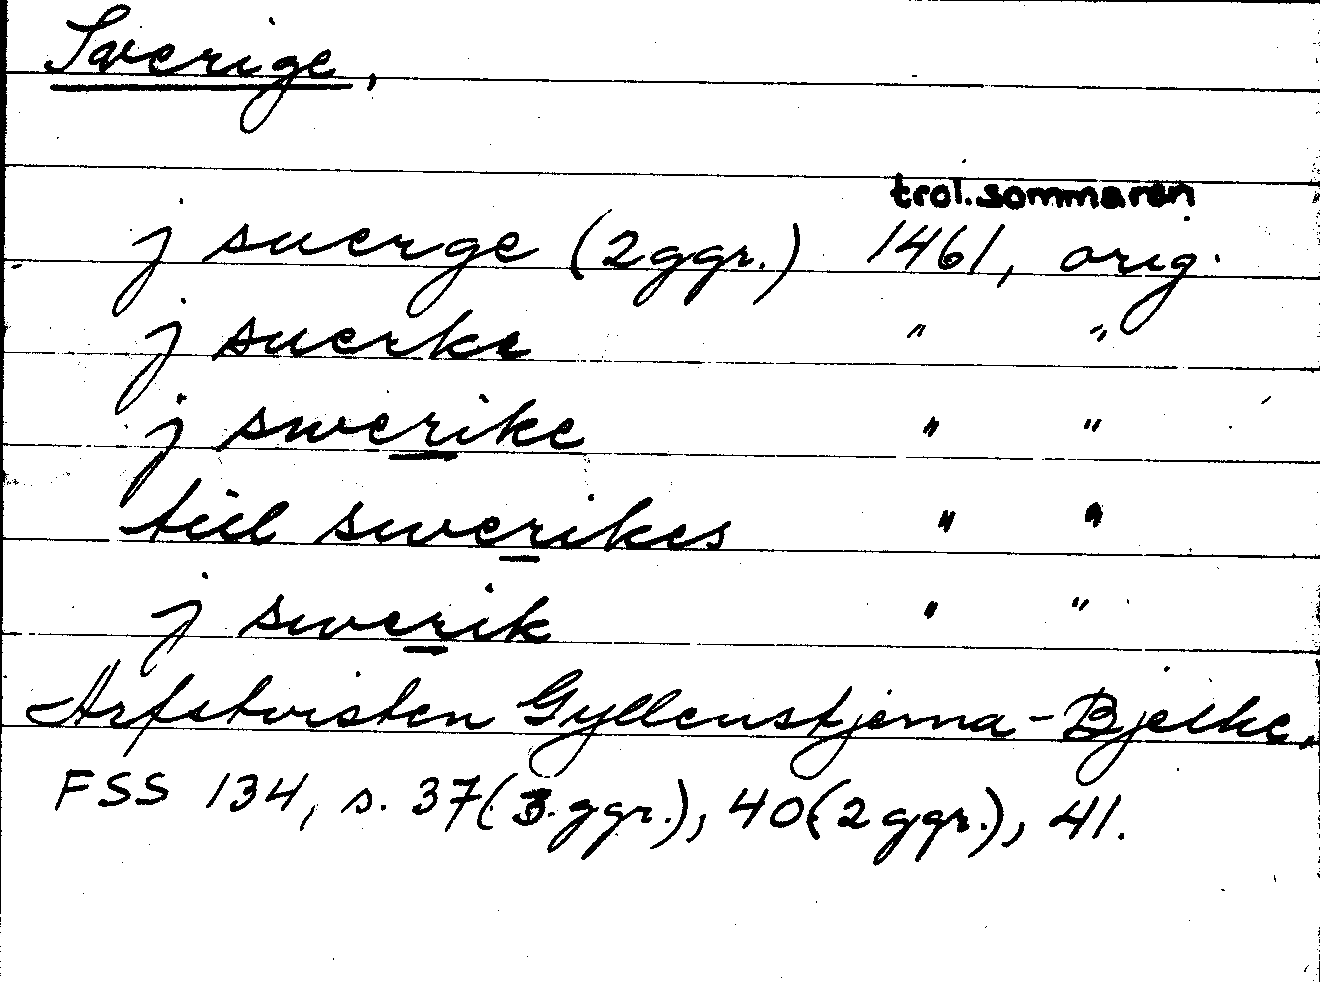 Sverige,
trol. sommaren
j suerge (2 ggr.) 1461, orig.
j suerke " "
j swerike " "
tiil swerikes " "
j swerik " "
Arfstvisten Gyllenstjerna-Bjelke.
FSS 134, s. 37 (3 ggr.), 40 (2 ggr.), 41.